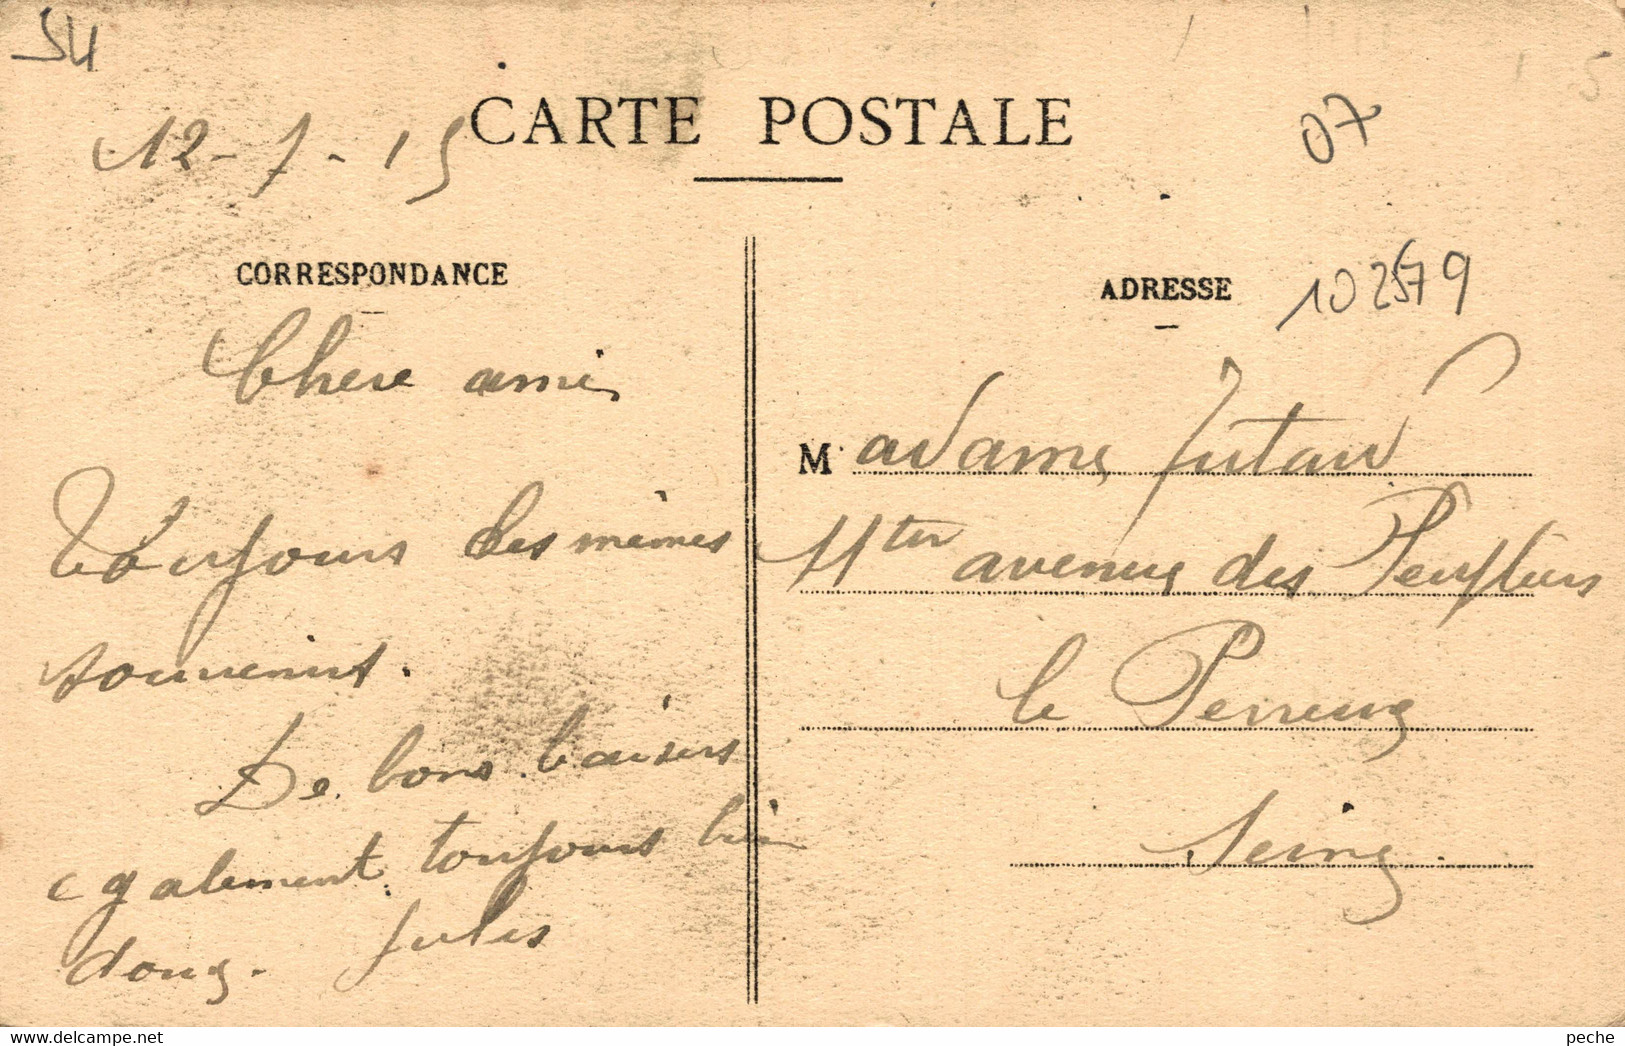 54
CARTE POSTALE
07
12-7-15
CORRESPONDANCE
ADRESSE
102579
Chere amie
Toujours les mêmes
souvenirs.
De bons baisers
egalement. toujours bien
doux. Jules
Madame Jutard
11ter avenue des Peupliers
le Perreux
Seine.
peche
www.delcampe.net